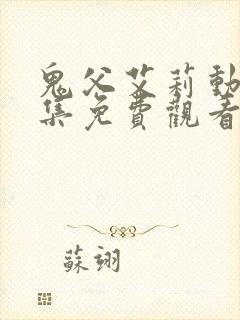 鬼父艾莉動
集免費觀看
蘇翊